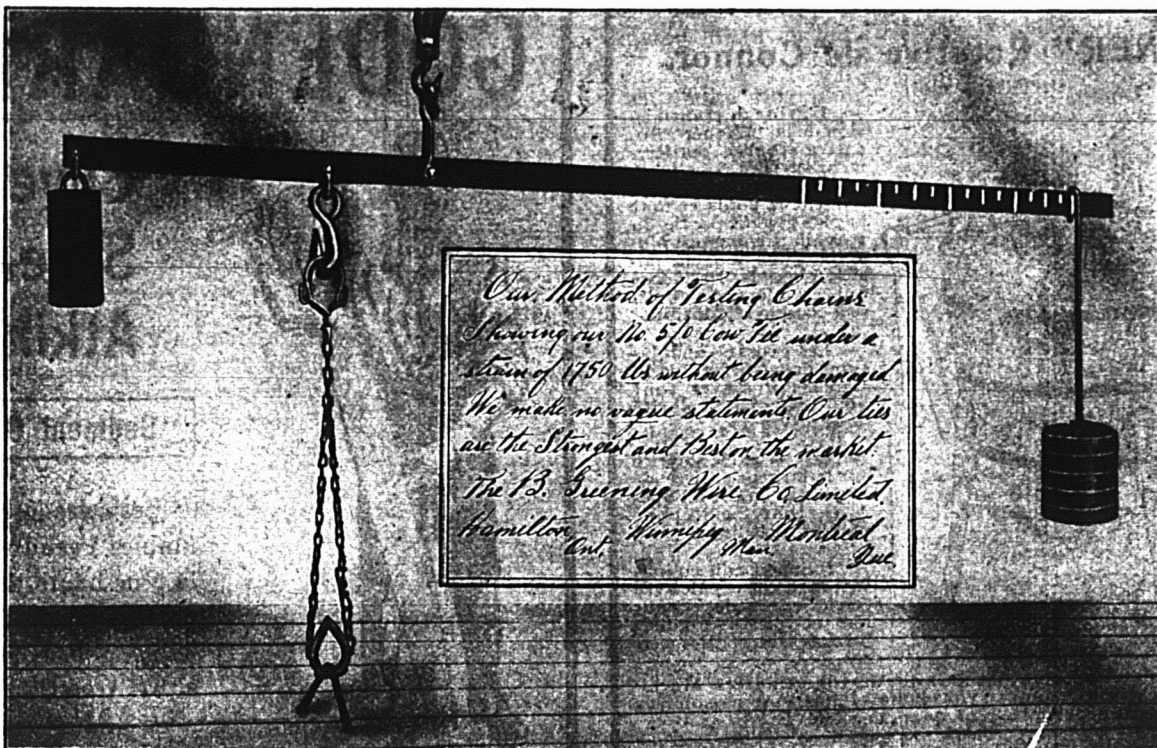 Our Method of Testing Chains
Showing our No. 5/0 Cow Tie under a
strain of 1750 lbs without being damaged
We make no vague statements. Our ties
are the Strongest and Best on the market.
The B. Greening Wire Co. Limited.
Hamilton, Winnipeg Montreal
Ont Man Que